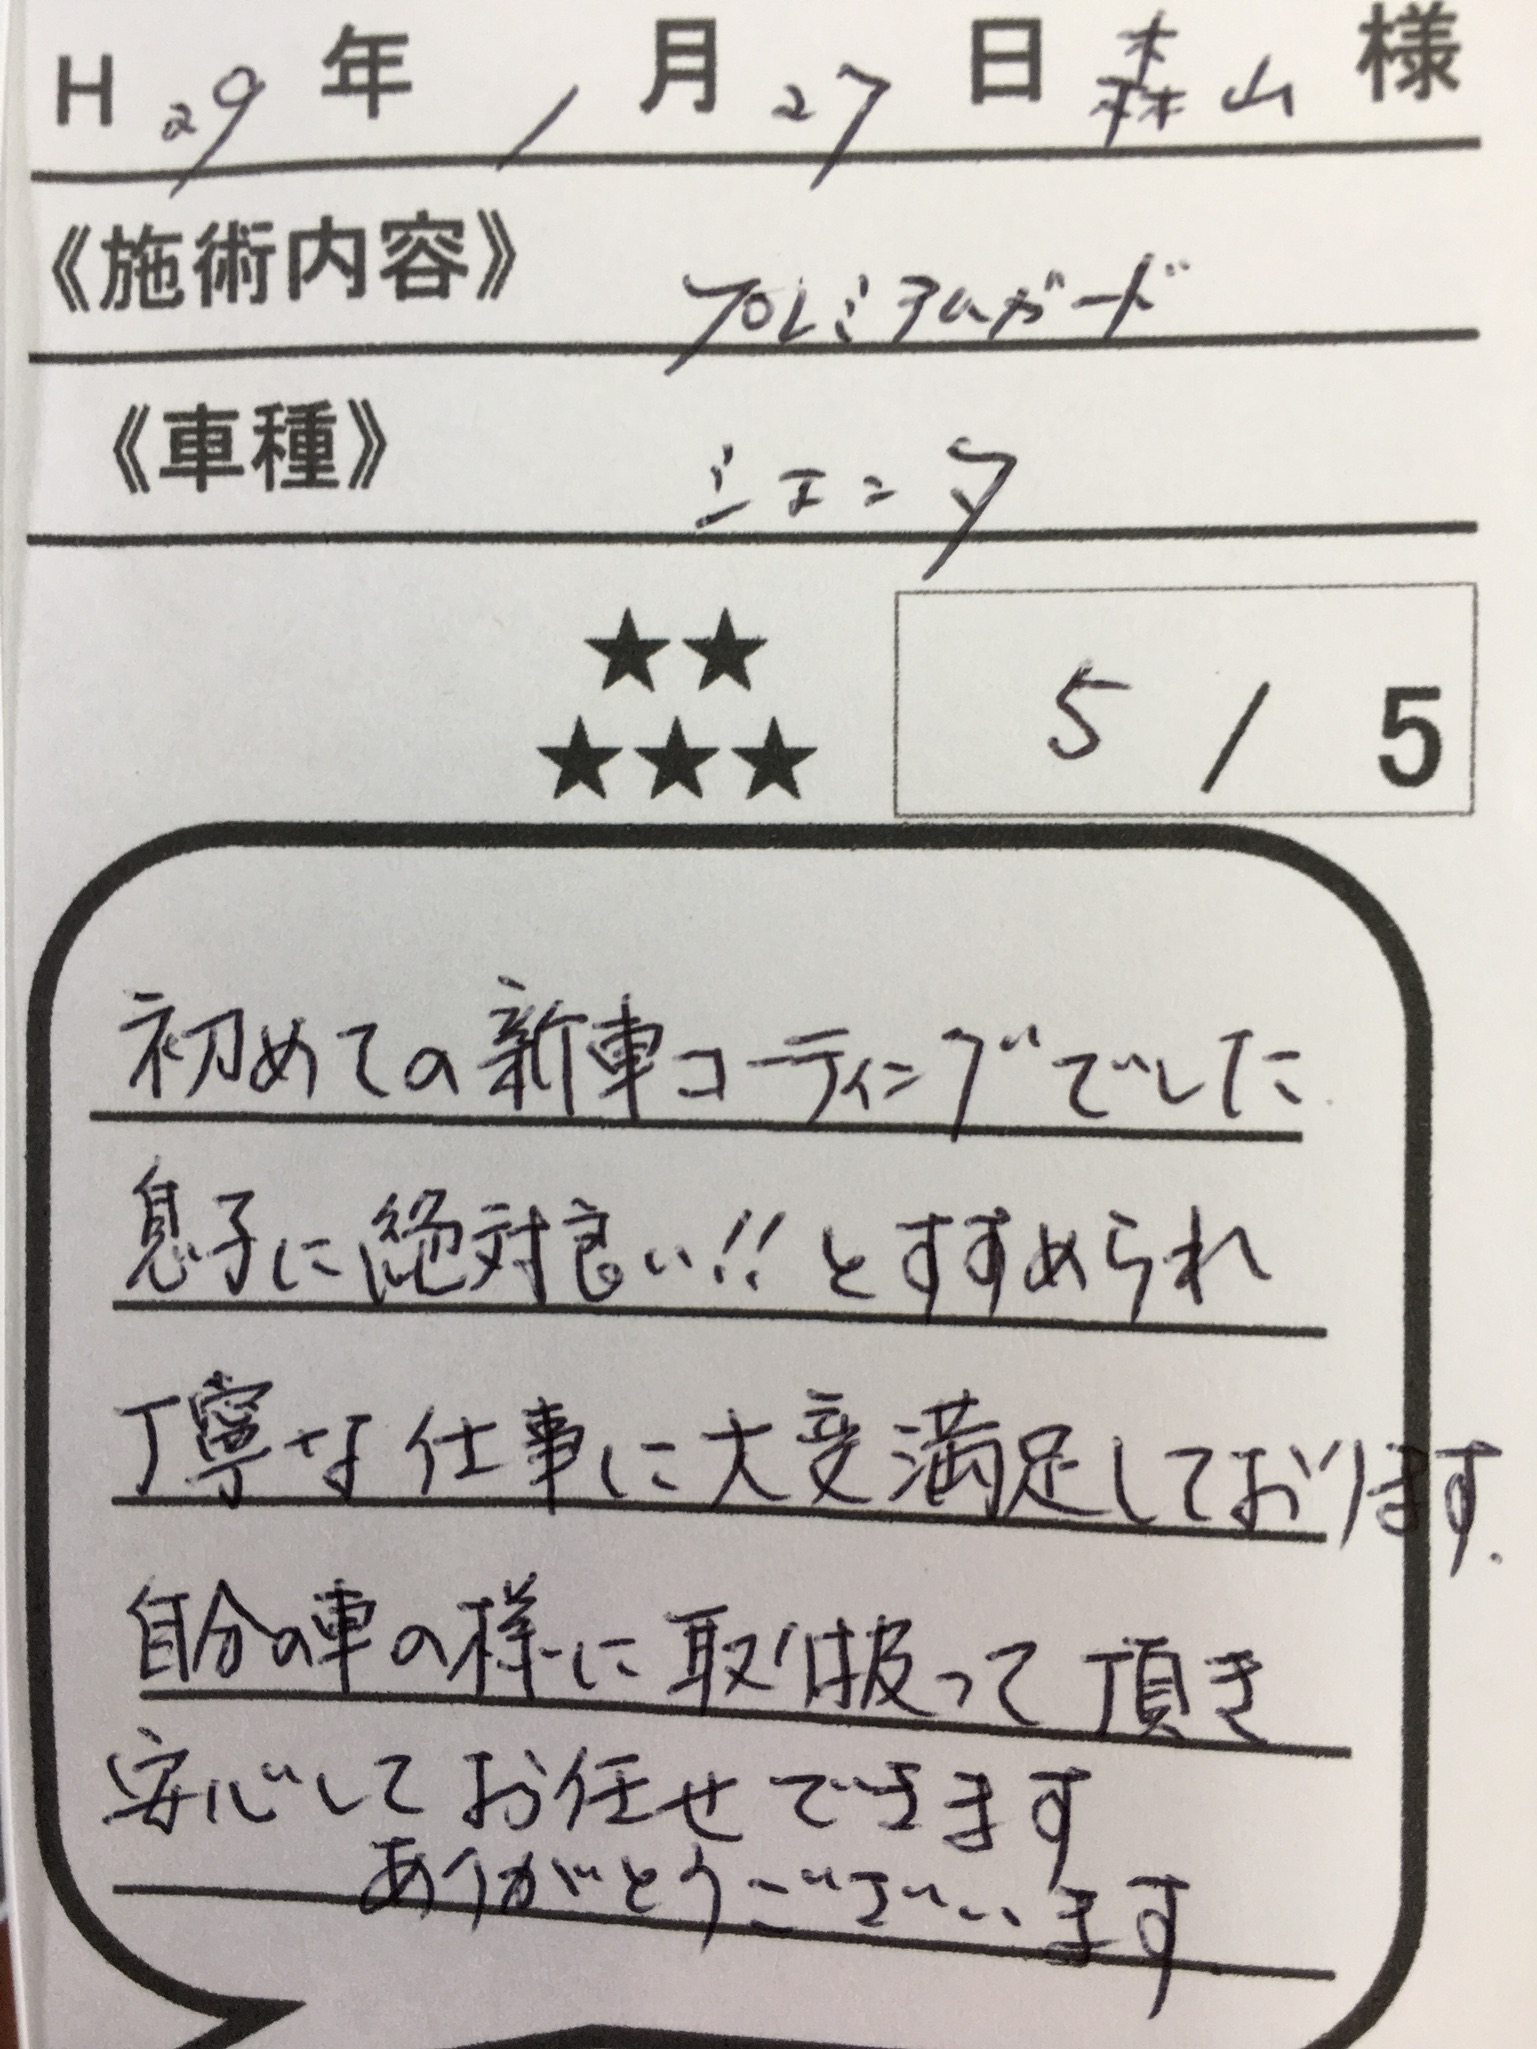 H 29 年 1 月 27 日 森山 様
《施術内容》 プレミアムガード
《車種》 シエンタ
★★
★★★ 5 / 5
初めての新車コーティングでした
息子に絶対良い!!とすすめられ
丁寧な仕事に大変満足しております.
自分の車の様に取り扱って頂き
安心してお任せできます
ありがとうございます